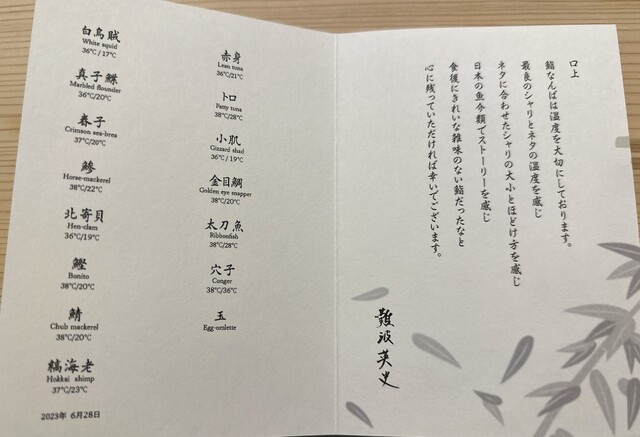 白烏賊
White squid
36℃ / 17℃
真子鰈
Marbled flounder
36℃/20℃
春子
Crimson sea-brea
37℃/20℃
鯵
Horse-mackerel
38℃/22℃
北寄貝
Hen-clam
36℃/19℃
鰹
Bonito
38℃/20℃
鯖
Chub mackerel
38℃/20℃
縞海老
Hokkai shimp
37℃/23℃
2023年 6月28日
赤身
Lean tuna
36℃/21℃
トロ
Fatty tuna
38℃/28℃
小肌
Gizzard shad
36℃ / 19℃
金目鯛
Golden eye snapper
38℃/20℃
太刀魚
Ribbonfish
38℃/28℃
穴子
Conger
38℃/36℃
玉
Egg-omlette
口上
鮨なんばは温度を大切にしております。
最良のシャリとネタの温度を感じ
ネタに合わせたシャリの大小とほどけ方を感じ
日本の魚介類でストーリーを感じ
食後にきれいな雑味のない鮨だったなと
心に残っていただければ幸いでございます。
難波英史